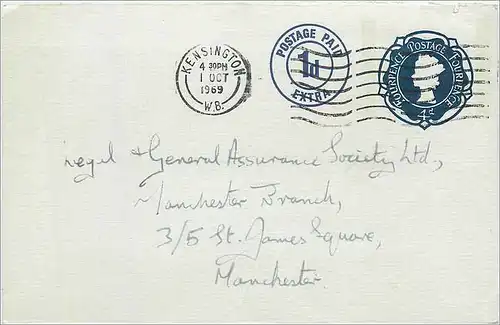 KENSINGTON
4 30PM
1 OCT
1969
W.8.
POSTAGE PAID
1d
EXTRA
FOURPENCE POSTAGE FOURPENCE
4d
Legal & General Assurance Society Ltd.,
Manchester Branch,
3/5 St. James Square,
Manchester.